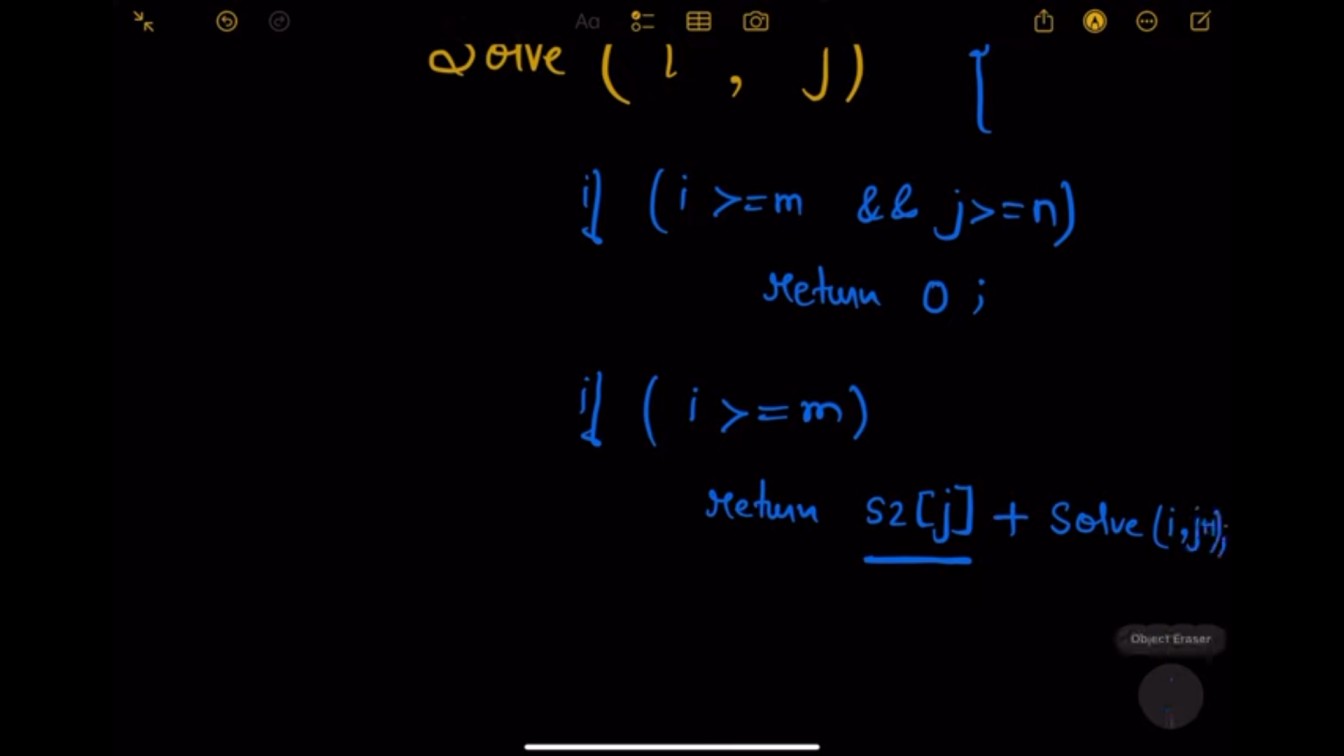 Aa
Solve ( i , j ) {
if ( i >=m && j>=n)
return 0 ;
if ( i >=m)
return s2[j] + Solve(i,j+1);
Object Eraser